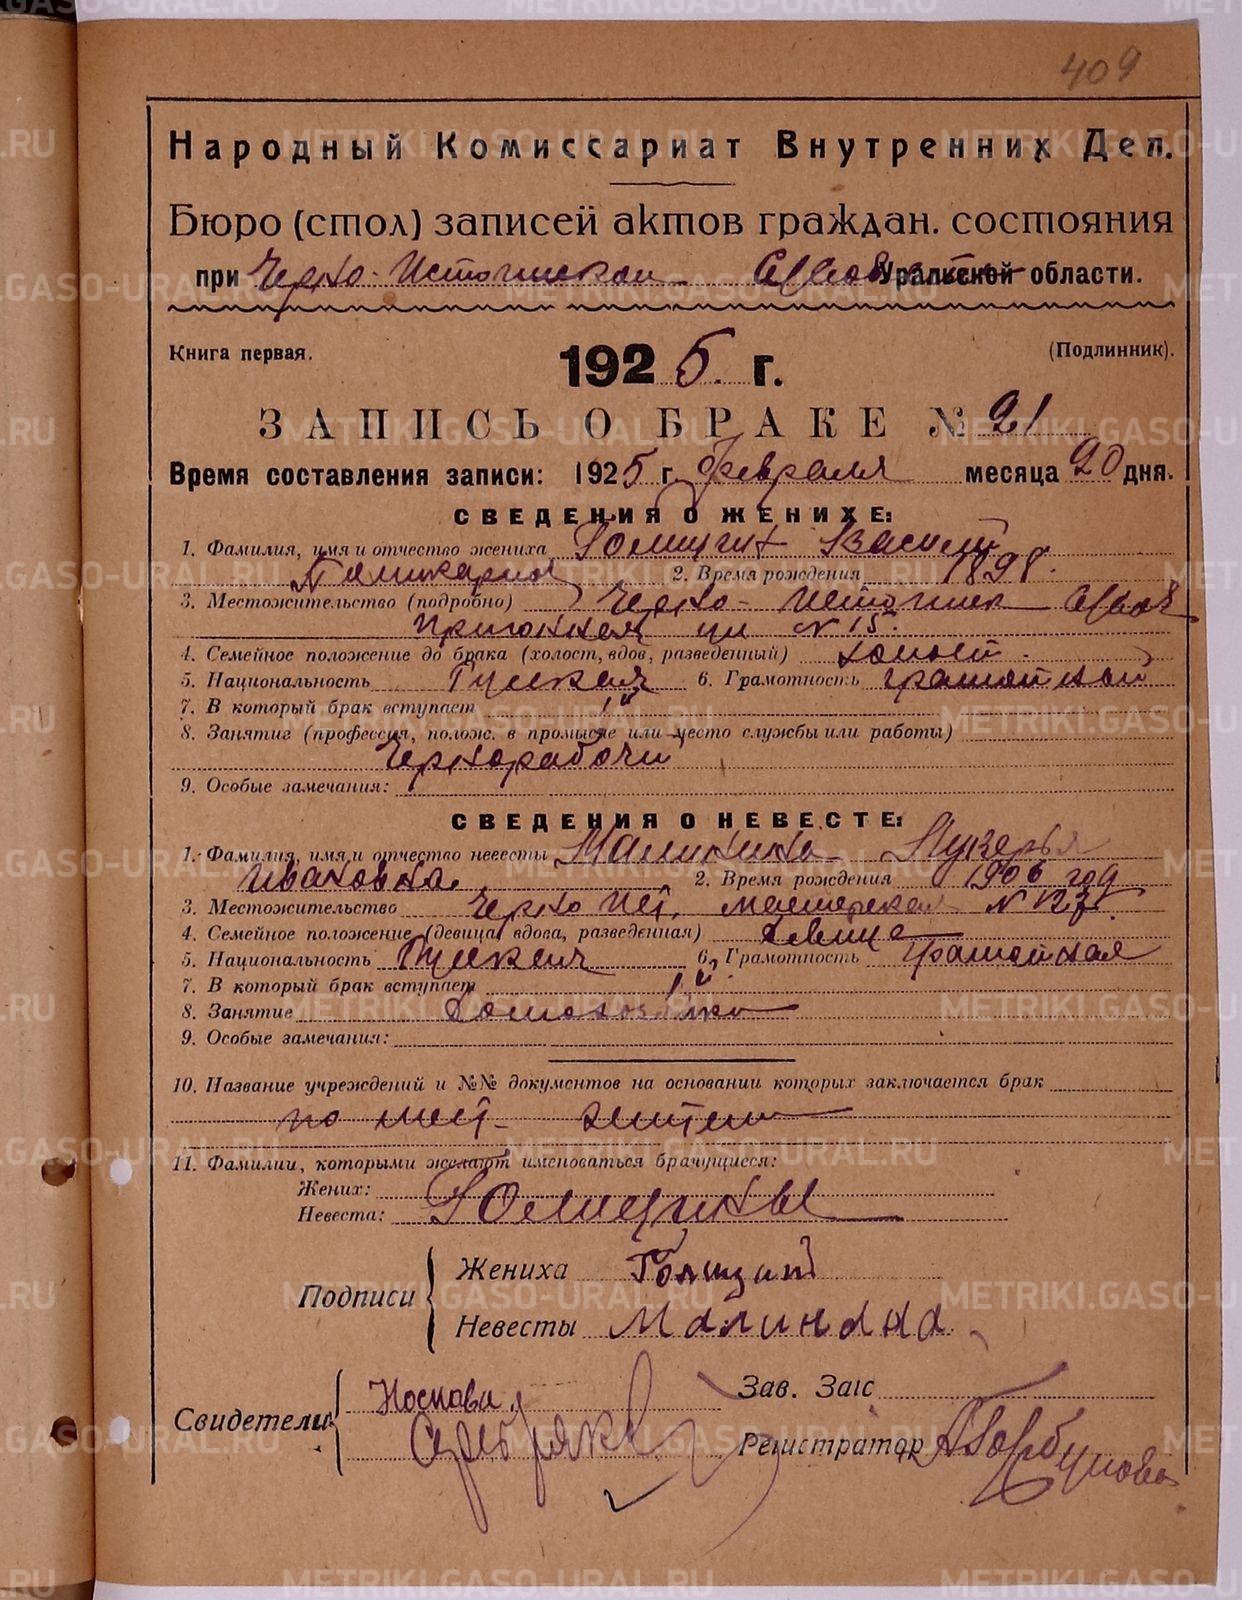 409
Народный Комиссариат Внутренних Дел.
Бюро (стол) записей актов граждан. состояния
при Черно-Источинском Уральской области.
Книга первая. 1925 г. (Подлинник).
ЗАПИСЬ О БРАКЕ № 21
Время составления записи: 1925 г. февраля месяца 20 дня.
СВЕДЕНИЯ О ЖЕНИХЕ:
1. Фамилия, имя и отчество жениха Голицин Василий
2. Время рождения 1898.
3. Местожительство (подробно) Черно-Источинск
ул № 15.
4. Семейное положение до брака (холост, вдов, разведенный) холост.
5. Национальность Русская 6. Грамотность грамотный
7. В который брак вступает 1й
8. Занятие (профессия, полож. в промысле или место службы или работы)
Чернорабочий
9. Особые замечания:
СВЕДЕНИЯ О НЕВЕСТЕ:
1. Фамилия, имя и отчество невесты Малинина Лукерья
Ивановна. 2. Время рождения 1906 год
3. Местожительство Черно Ист. мастерская №
4. Семейное положение (девица, вдова, разведенная) девица
5. Национальность Русская 6. Грамотность грамотная
7. В который брак вступает 1й
8. Занятие Домохозяйка
9. Особые замечания:
10. Название учреждений и №№ документов на основании которых заключается брак
по мест. жител
11. Фамилии, которыми желают именоваться брачущиеся:
Жених:
Невеста: Голицины
Подписи
Жениха Голицин
Невесты Малинина
Свидетели
Носкова
Серебряков
Зав. Загс
Регистратор АГорбунова
METRIKI.GASO-URAL.RU